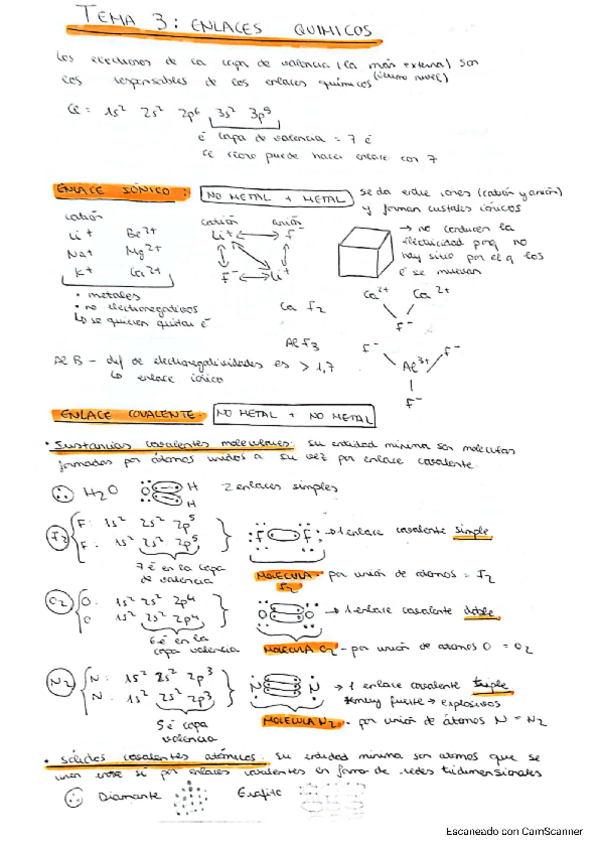 TEMA 3: ENLACES QUIMICOS
Los electrones de la capa de valencia (la más externa) son
los responsables de los enlaces químicos (último nivel)
Cl = 1s² 2s² 2p⁶ 3s² 3p⁵
é capa de valencia = 7 é
puede hacer enlace con 7
ENLACE IÓNICO: NO METAL + METAL se da entre iones (catión y anión)
y forman cristales iónicos
catión
Li⁺ Be²⁺
Na⁺ Mg²⁺
K⁺ Ca²⁺
• metales
• no electronegativos
↳ se quieren quitar é
catión anión
Li⁺ F⁻
F⁻ Li⁺
→ no conducen la
electricidad porq no
hay sitio por el q los
é se muevan
Ca F₂
Ca²⁺ Ca²⁺
F⁻
Al F₃
F⁻ F⁻
Al³⁺
F⁻
A B - dif de electronegatividades es > 1,7
↳ enlace iónico
ENLACE COVALENTE: NO METAL + NO METAL
• Sustancias covalentes moleculares: su entidad mínima son moléculas
formadas por átomos unidos a su vez por enlace covalente.
H₂O O H H 2 enlaces simples
F₂ F: 1s² 2s² 2p⁵
F: 1s² 2s² 2p⁵
7 é en la capa
de valencia
F F → 1 enlace covalente simple
MOLÉCULA F₂ - por unión de átomos = F₂
O₂ O: 1s² 2s² 2p⁴
O 1s² 2s² 2p⁴
6 é en la
capa valencia
O O → 1 enlace covalente doble
MOLÉCULA O₂ - por unión de átomos O = O₂
N₂ N: 1s² 2s² 2p³
N: 1s² 2s² 2p³
5 é capa
valencia
N N → 1 enlace covalente triple
muy fuerte → explosivos
MOLÉCULA N₂ - por unión de átomos N = N₂
• Sólidos covalentes atómicos: su entidad mínima son átomos que se
unen entre sí por enlaces covalentes en forma de redes tridimensionales
Diamante Grafito
Escaneado con CamScanner